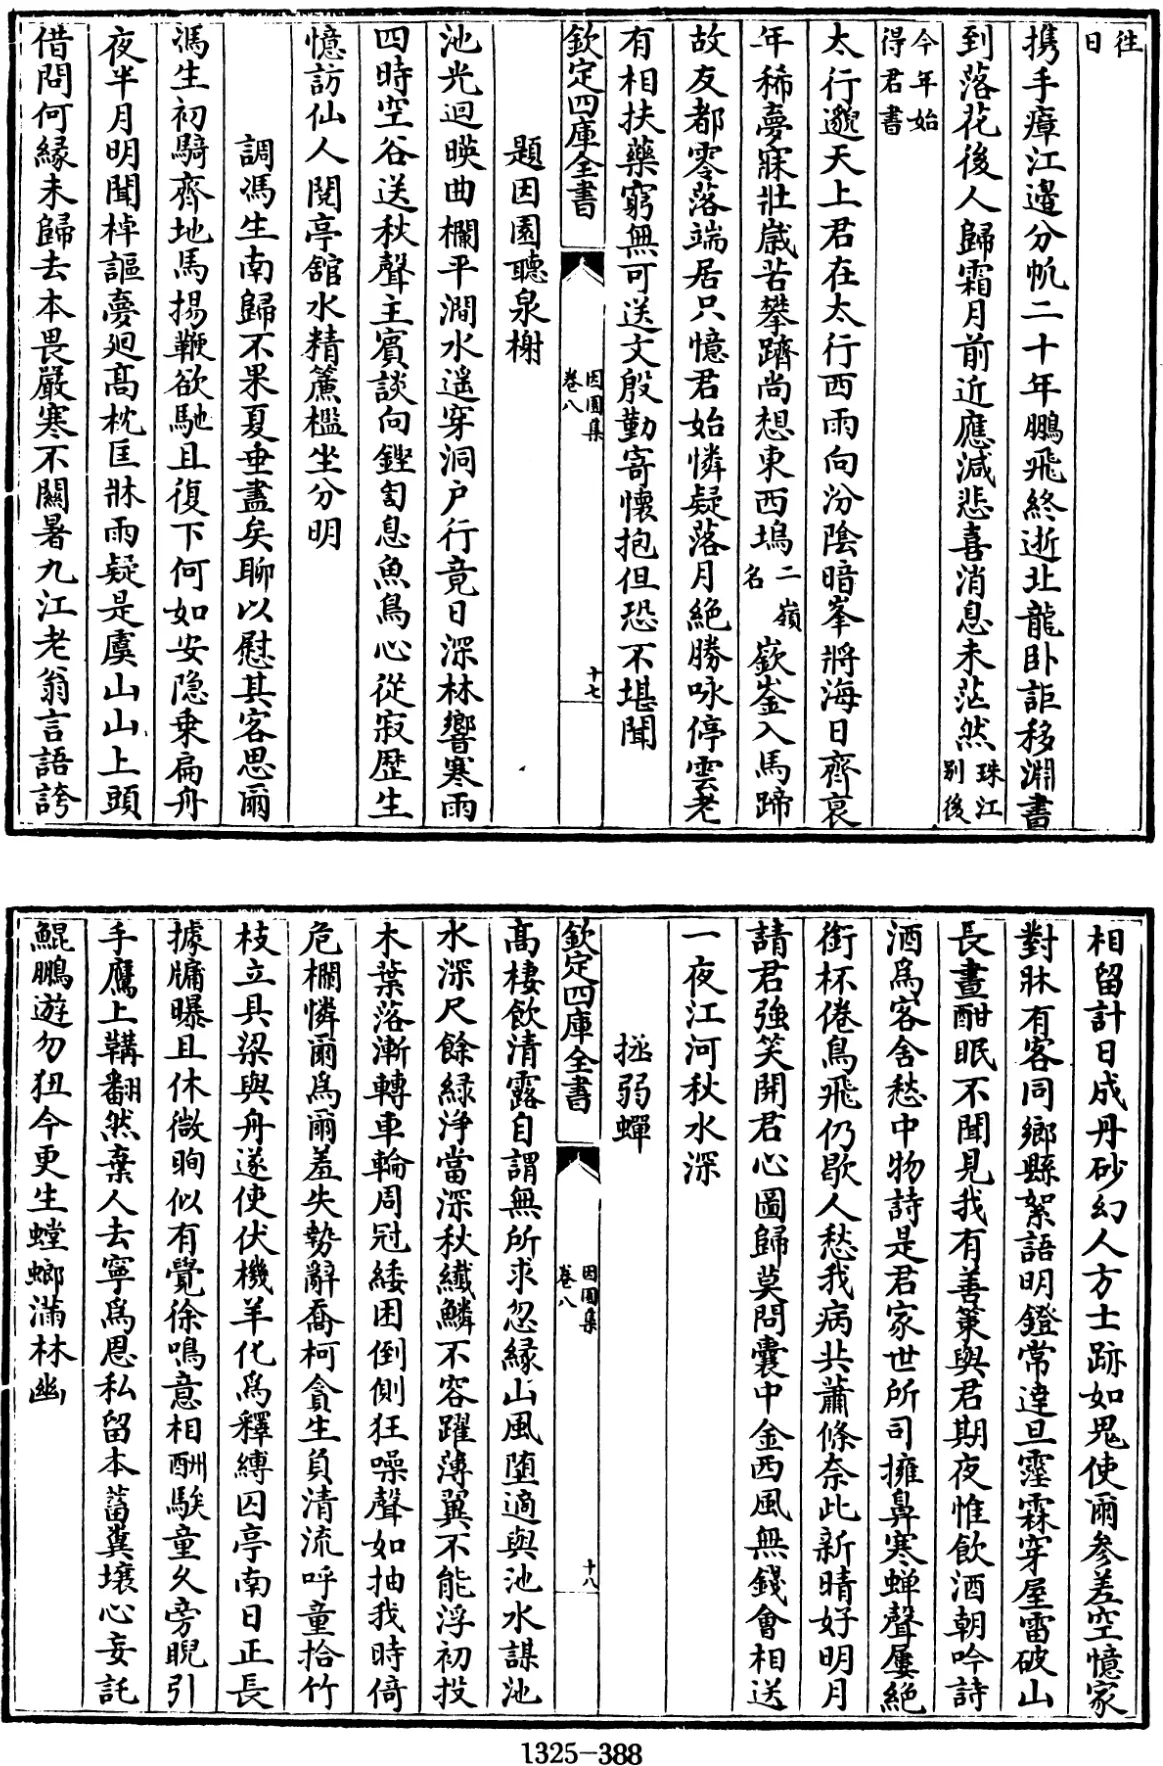 往日
携手瘴江邉分㠶二十年鵬飛終逝北龍卧詎移淵書
到落花後人歸霜月前近應減悲喜消息未茫然珠江別後
今年始得君書
太行邈天上君在太行西雨向汾陰暗峯將海日齊哀
年稀夢寐壯嵗苦攀躋尚想東西塢二嶺名嶔崟入馬蹄
故友都零落端居只憶君始憐疑落月絶勝咏停雲老
有相扶藥窮無可送文殷勤寄懷抱但恐不堪聞
欽定四庫全書
因園集
卷八
十七
題因園聽泉榭
池光迴暎曲欄平澗水遥穿洞户行竟日深林響寒雨
四時空谷送秋聲主賓談向鏗訇息魚鳥心從寂歴生
憶訪仙人閱亭舘水精簾檻坐分明
調馮生南歸不果夏垂盡矣聊以慰其客思爾
馮生初騎齊地馬揚鞭欲馳且復下何如安隐乗扁舟
夜半月明聞棹謳夢廻髙枕匡牀雨疑是虞山山上頭
借問何縁未歸去本畏嚴寒不關暑九江老翁言語誇
相留計日成丹砂幻人方士跡如鬼使爾參差空憶家
對牀有客同鄉縣絮語明鐙常達旦霪霖穿屋雷破山
長晝酣眠不聞見我有善策與君期夜惟飲酒朝吟詩
酒爲客舍愁中物詩是君家世所司擁鼻寒蟬聲屢絶
銜杯倦鳥飛仍歇人愁我病共蕭條奈此新晴好明月
請君強笑開君心圖歸莫問囊中金西風無錢會相送
一夜江河秋水深
拯弱蟬
欽定四庫全書
因園集
卷八
十八
髙棲飲清露自謂無所求忽縁山風堕適與池水謀池
水深尺餘緑浄當深秋纎鱗不容躍薄翼不能浮初投
木葉落漸轉車輪周冠緌困倒側狂噪聲如抽我時倚
危欄憐爾爲爾羞失勢辭喬柯貪生負清流呼童拾竹
枝立具梁與舟遂使伏機羊化爲釋縛囚亭南日正長
據牗曝且休微眴似有覺徐鳴意相酬騃童久旁睨引
手鷹上韝翻然棄人去寧爲恩私留本葘糞壤心妄託
鯤鵬遊勿狃今更生螳螂滿林幽
1325-388